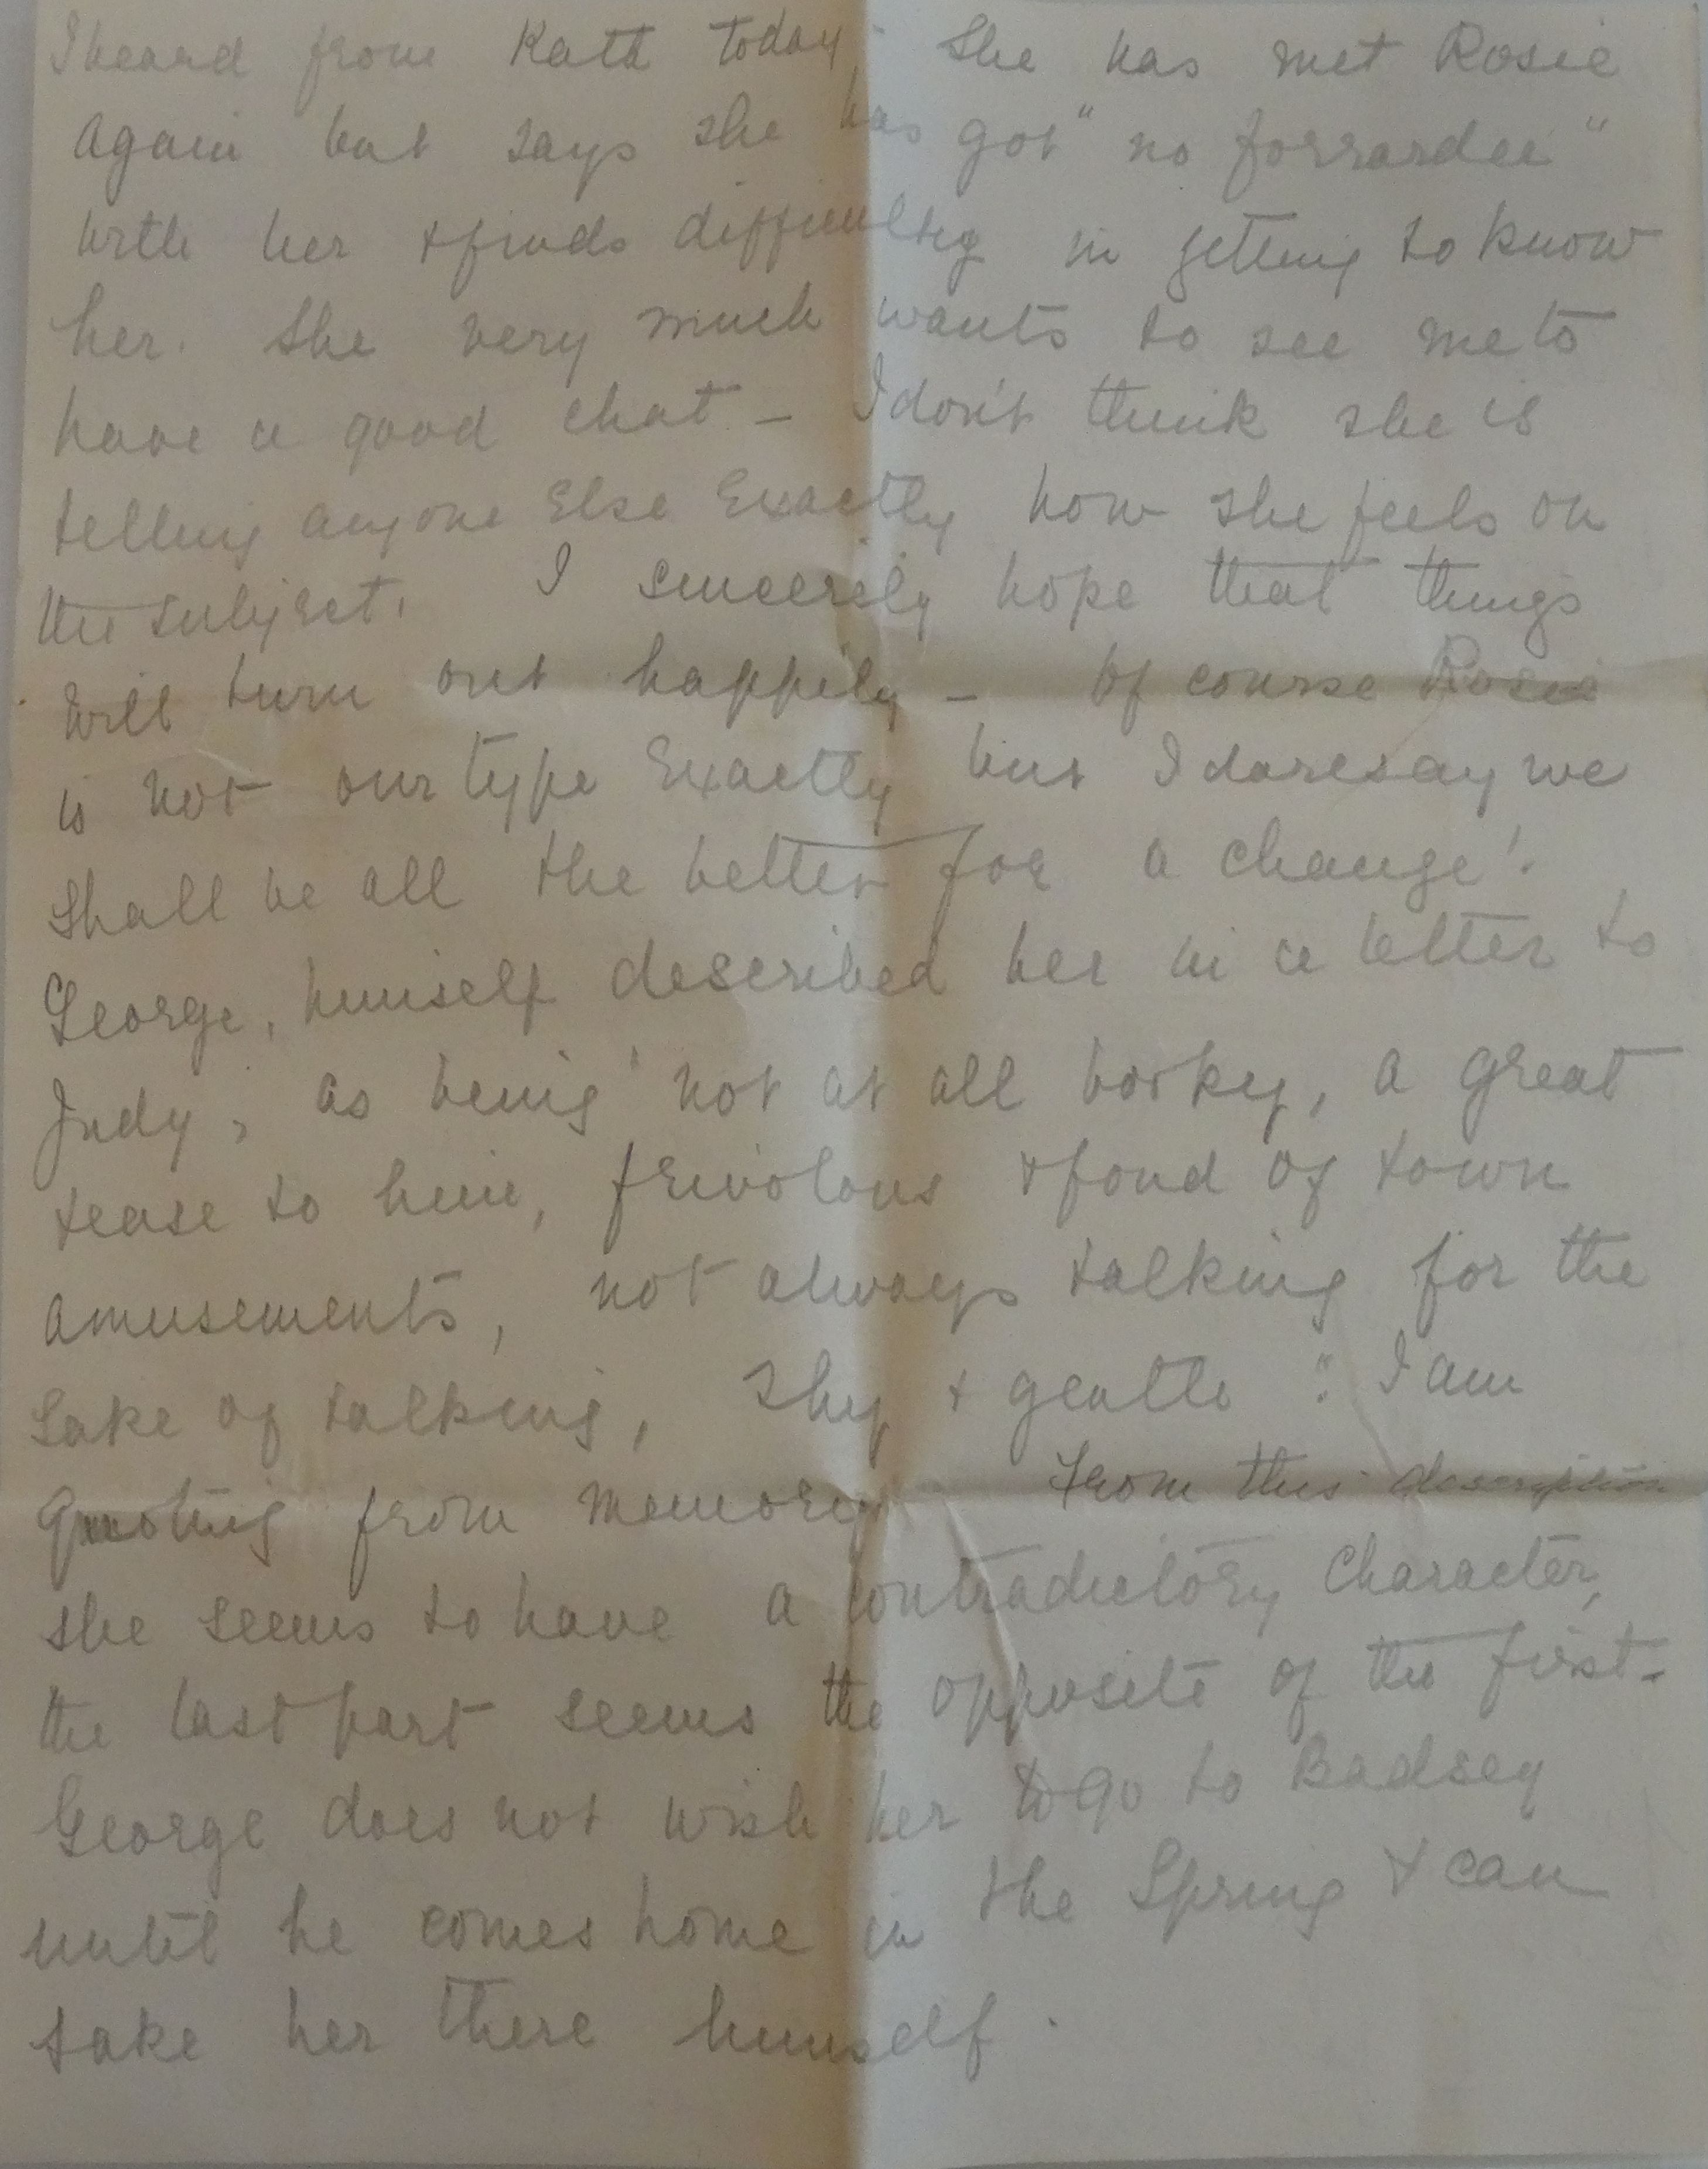 I heard from Kath today, she has met Rosie
again but says she has got "no forrarder"
with her & finds difficulty in getting to know
her. She very much wants to see me to
have a good chat – I don't think she is
telling anyone Else Exactly how she feels on
the subject. I sincerely hope that things
will turn out happily – Of course Rosie
is not our type Exactly but I daresay we
shall be all the better for a change!
George, himself described her in a letter to
Judy, as being "not at all booky, a great
tease to him, frivolous & fond of town
amusements, not always talking for the
sake of talking, shy & gentle". I am
quoting from memory. From this description
she seems to have a contradictory character,
the last part seems the opposite of the first.
George does not wish her to go to Badsey
until he comes home in the Spring & can
take her there himself.